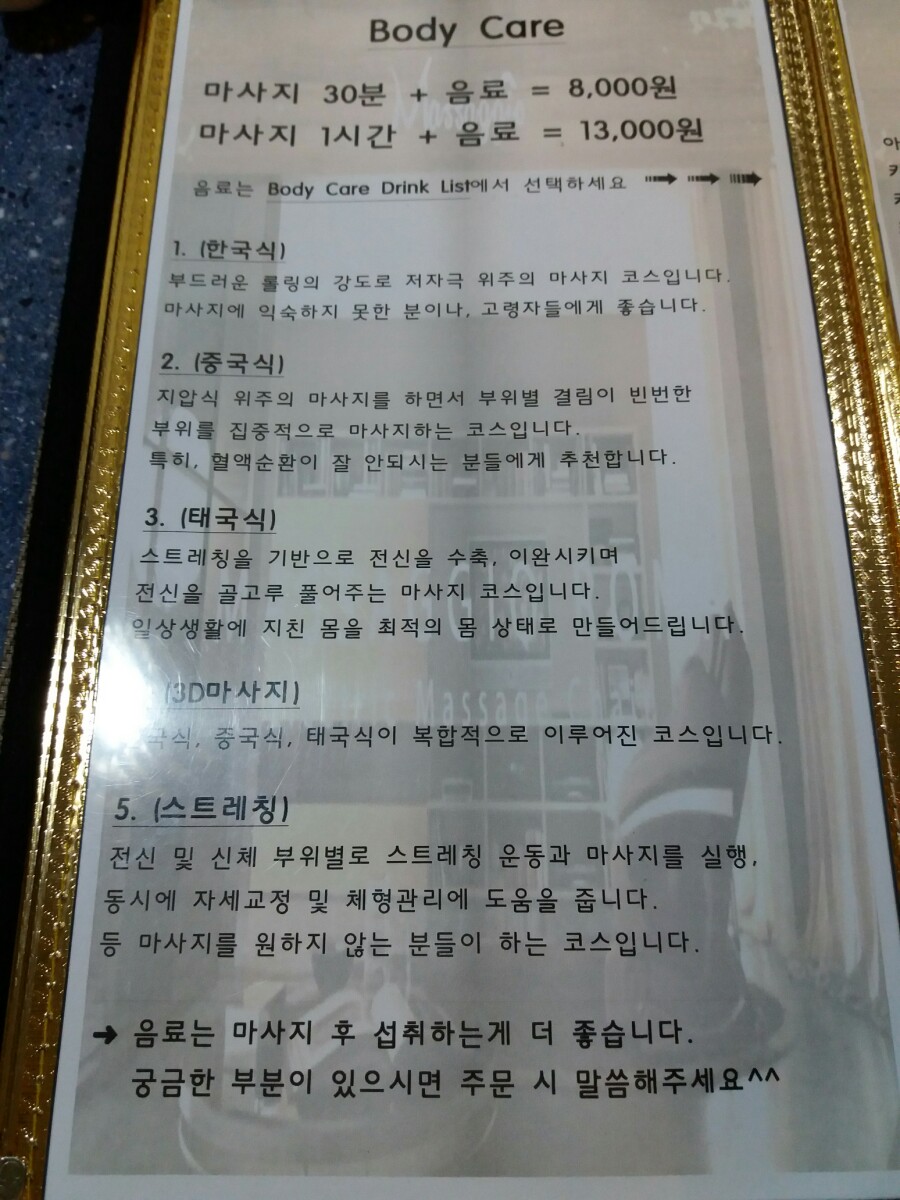 Body Care
마사지 30분 + 음료 = 8,000원
마사지 1시간 + 음료 = 13,000원
음료는 Body Care Drink List에서 선택하세요
1. (한국식)
부드러운 롤링의 강도로 저자극 위주의 마사지 코스입니다.
마사지에 익숙하지 못한 분이나, 고령자들에게 좋습니다.
2. (중국식)
지압식 위주의 마사지를 하면서 부위별 결림이 빈번한
부위를 집중적으로 마사지하는 코스입니다.
특히, 혈액순환이 잘 안되시는 분들에게 추천합니다.
3. (태국식)
스트레칭을 기반으로 전신을 수축, 이완시키며
전신을 골고루 풀어주는 마사지 코스입니다.
일상생활에 지친 몸을 최적의 몸 상태로 만들어드립니다.
(3D마사지)
국식, 중국식, 태국식이 복합적으로 이루어진 코스입니다.
5. (스트레칭)
전신 및 신체 부위별로 스트레칭 운동과 마사지를 실행,
동시에 자세교정 및 체형관리에 도움을 줍니다.
등 마사지를 원하지 않는 분들이 하는 코스입니다.
➜ 음료는 마사지 후 섭취하는게 더 좋습니다.
궁금한 부분이 있으시면 주문 시 말씀해주세요^^